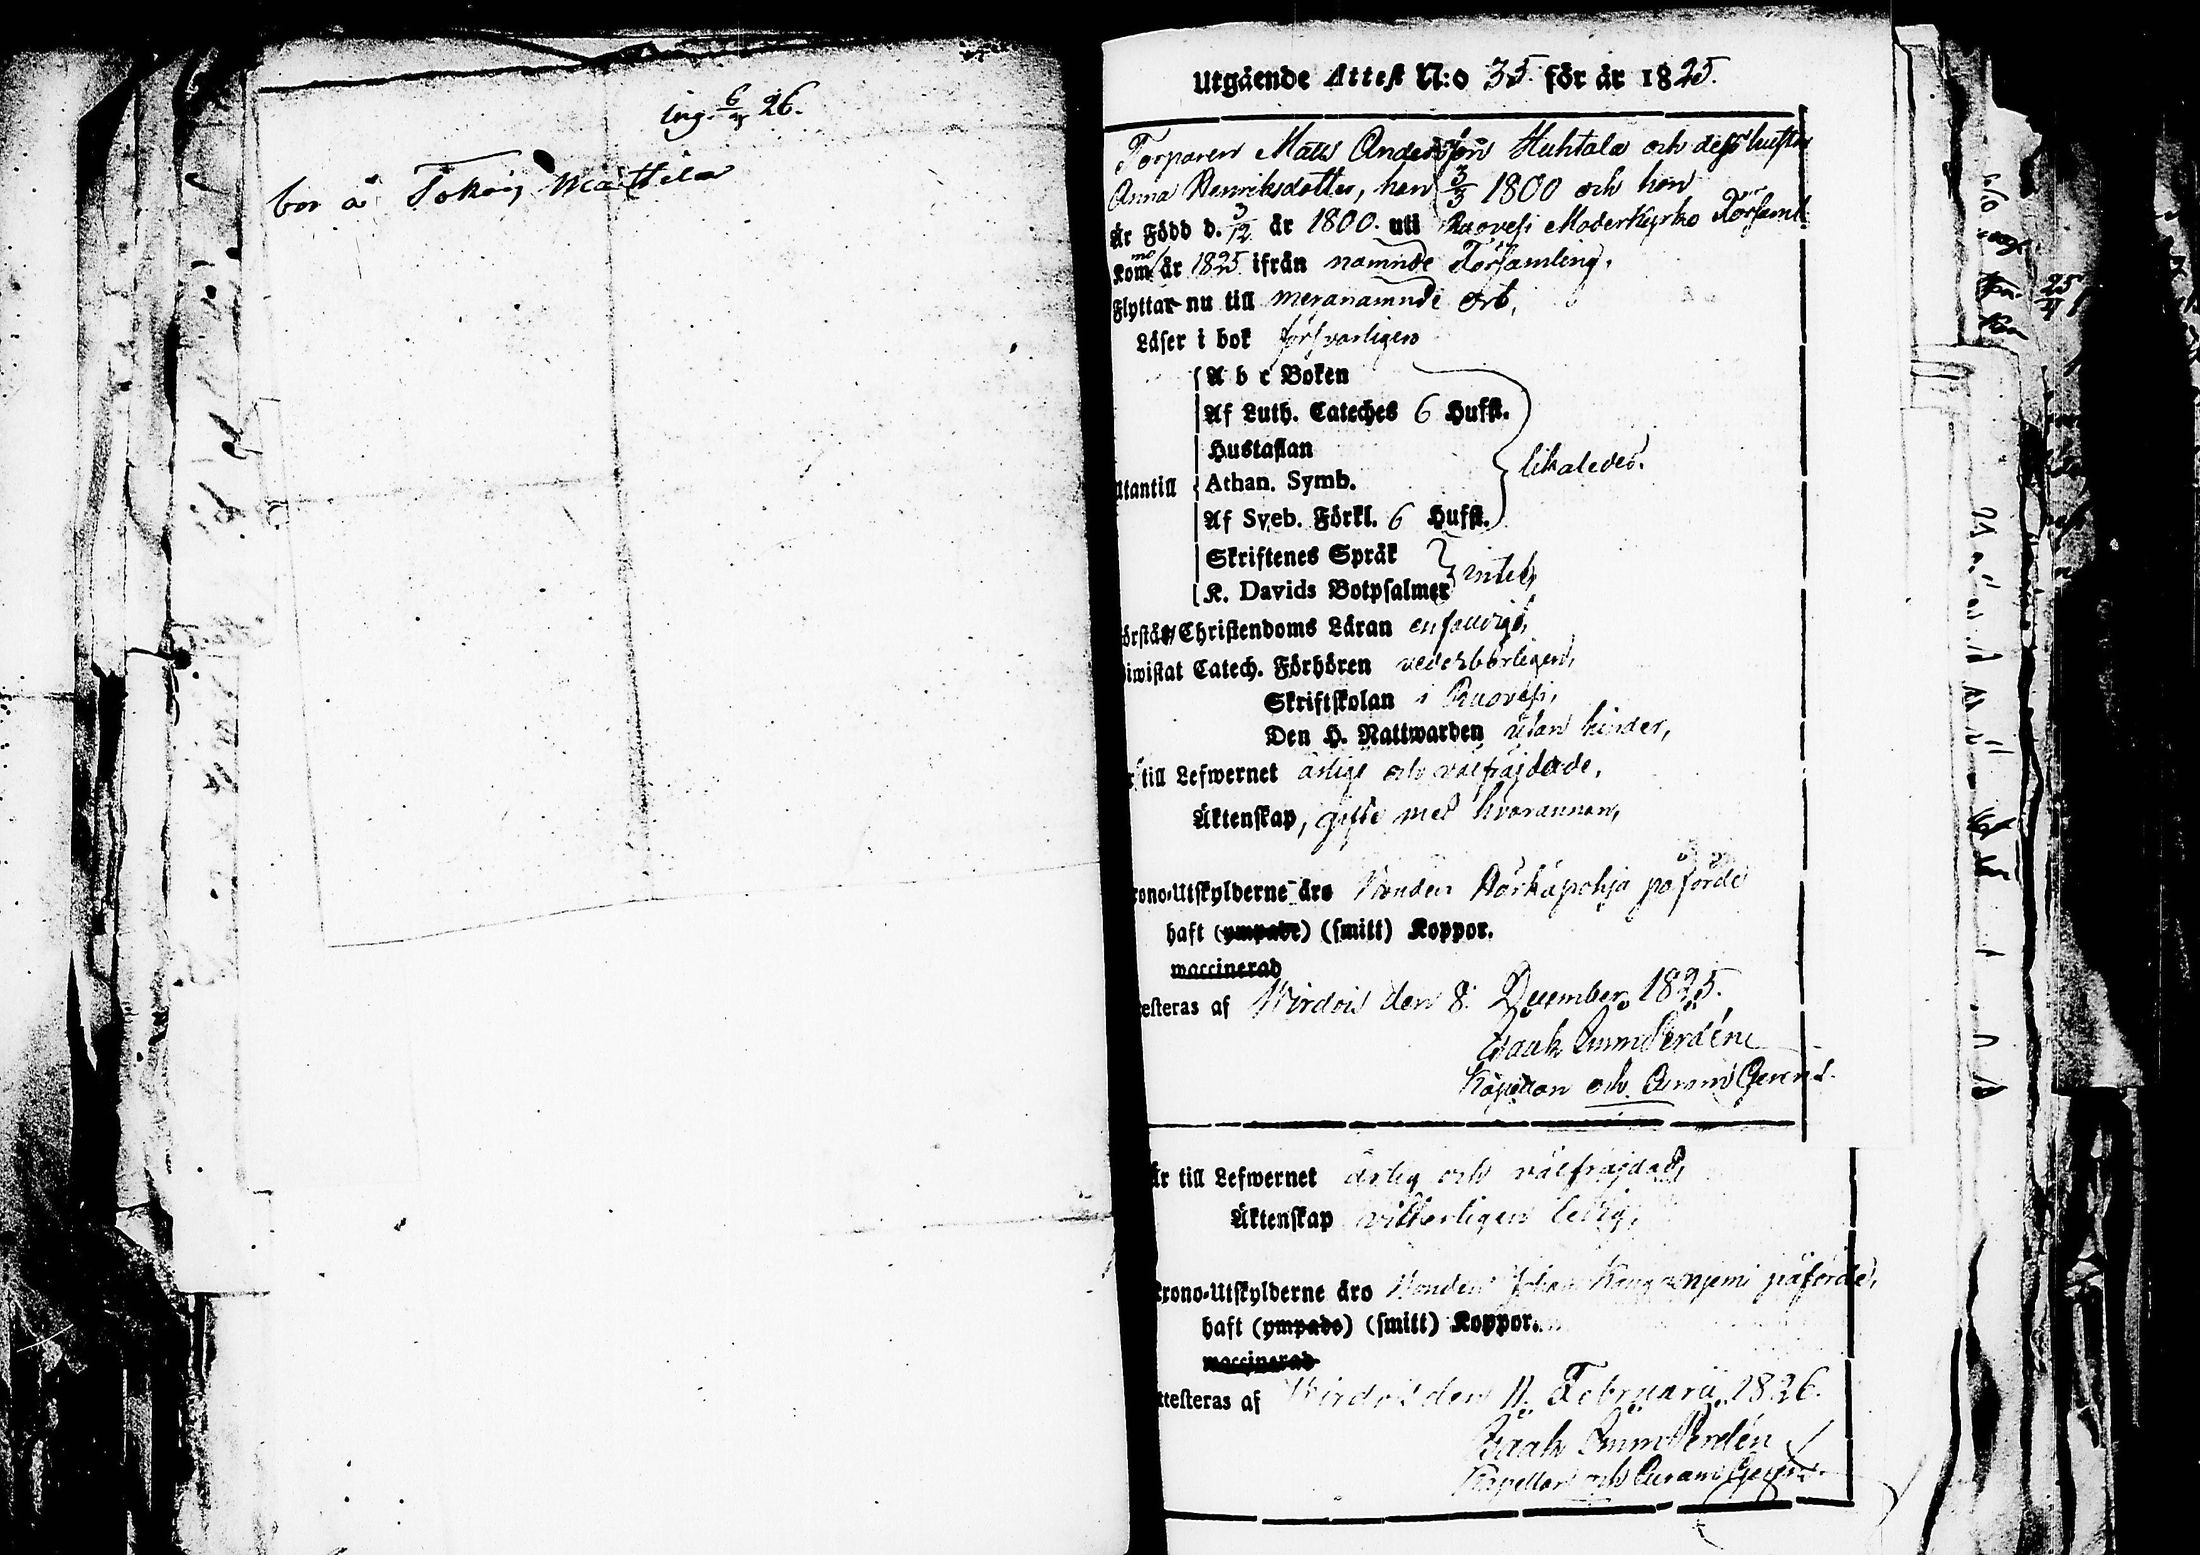 ing. 6/3 26.
bor å Mattila
Utgående Attest N:o 35. för år 1825.
Torparen Matts Andersson Huhtala och dess hustru
Anna Henriksdotter, han 3/3 1800 och hon
är Född d. 3/12 år 1800. uti Ruovesi Moderkyrko Församl.
Kom år 1825 ifrån namnde Församling.
Flyttar nu till meranamnde ort,
Läser i bok försvarligen
A b c Boken
Af Luth. Cateches 6 Hufst.
Hustaflan
likaledes.
utantill Athan. Symb.
Af Sveb. Förkl. 6 Hufst.
Skriftenes Språk
intet,
K. Davids Botpsalmer
örstår Christendoms Läran enfaldigt,
iwistat Catech. Förhören vederbörligen,
Skriftskolan i Ruovesi,
Den H. Nattwarden utan hinder,
r till Lefwernet ärlige och välfräjdade,
Äktenskap, gifte med hvarannan,
rono-Utskylderne äro Bonden Härkäpohja påförde
haft (ympade) (smitt) Koppor.
waccinerad
testeras af Wirdois den 8. December 1825.
Isaak
Kapellan och
är till Lefwernet ärlig och välfräjdad,
Äktenskap vitterligen ledig,
Krono-Utskylderne äro Bonden Johan påförde,
haft (ympade) (smitt) Koppor.
waccinerad
ttesteras af Wirdois den 11. Februarii 1826.
Isaak
Kapellan och